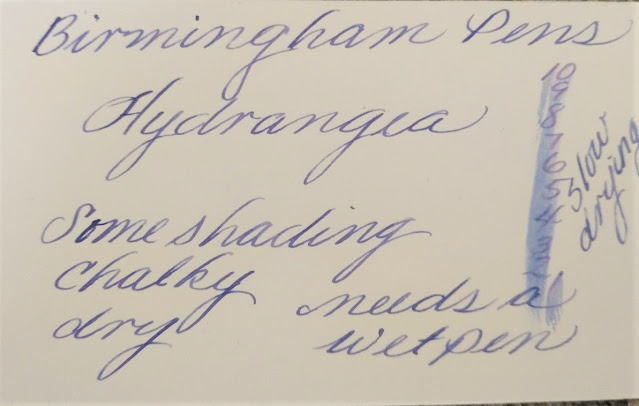 Birmingham Pens
Hydrangea
10
9
8
7
6
5
4
3
2
1
slow
drying
Some shading
chalky
dry
needs a
wet pen